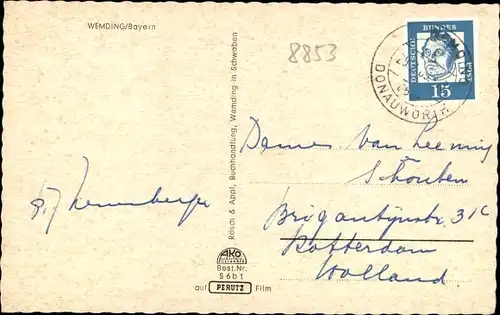 WEMDING/Bayern
8853
DEUTSCHE BUNDESPOST
15
DONAUWÖRTH
Rösch & Appl, Buchhandlung, Wemding in Schwaben
Dames van
Schouten
Brigantijnstr. 31c
Rotterdam
Holland.
AKO
Best.Nr.
S 6 b 1
auf PERUTZ Film